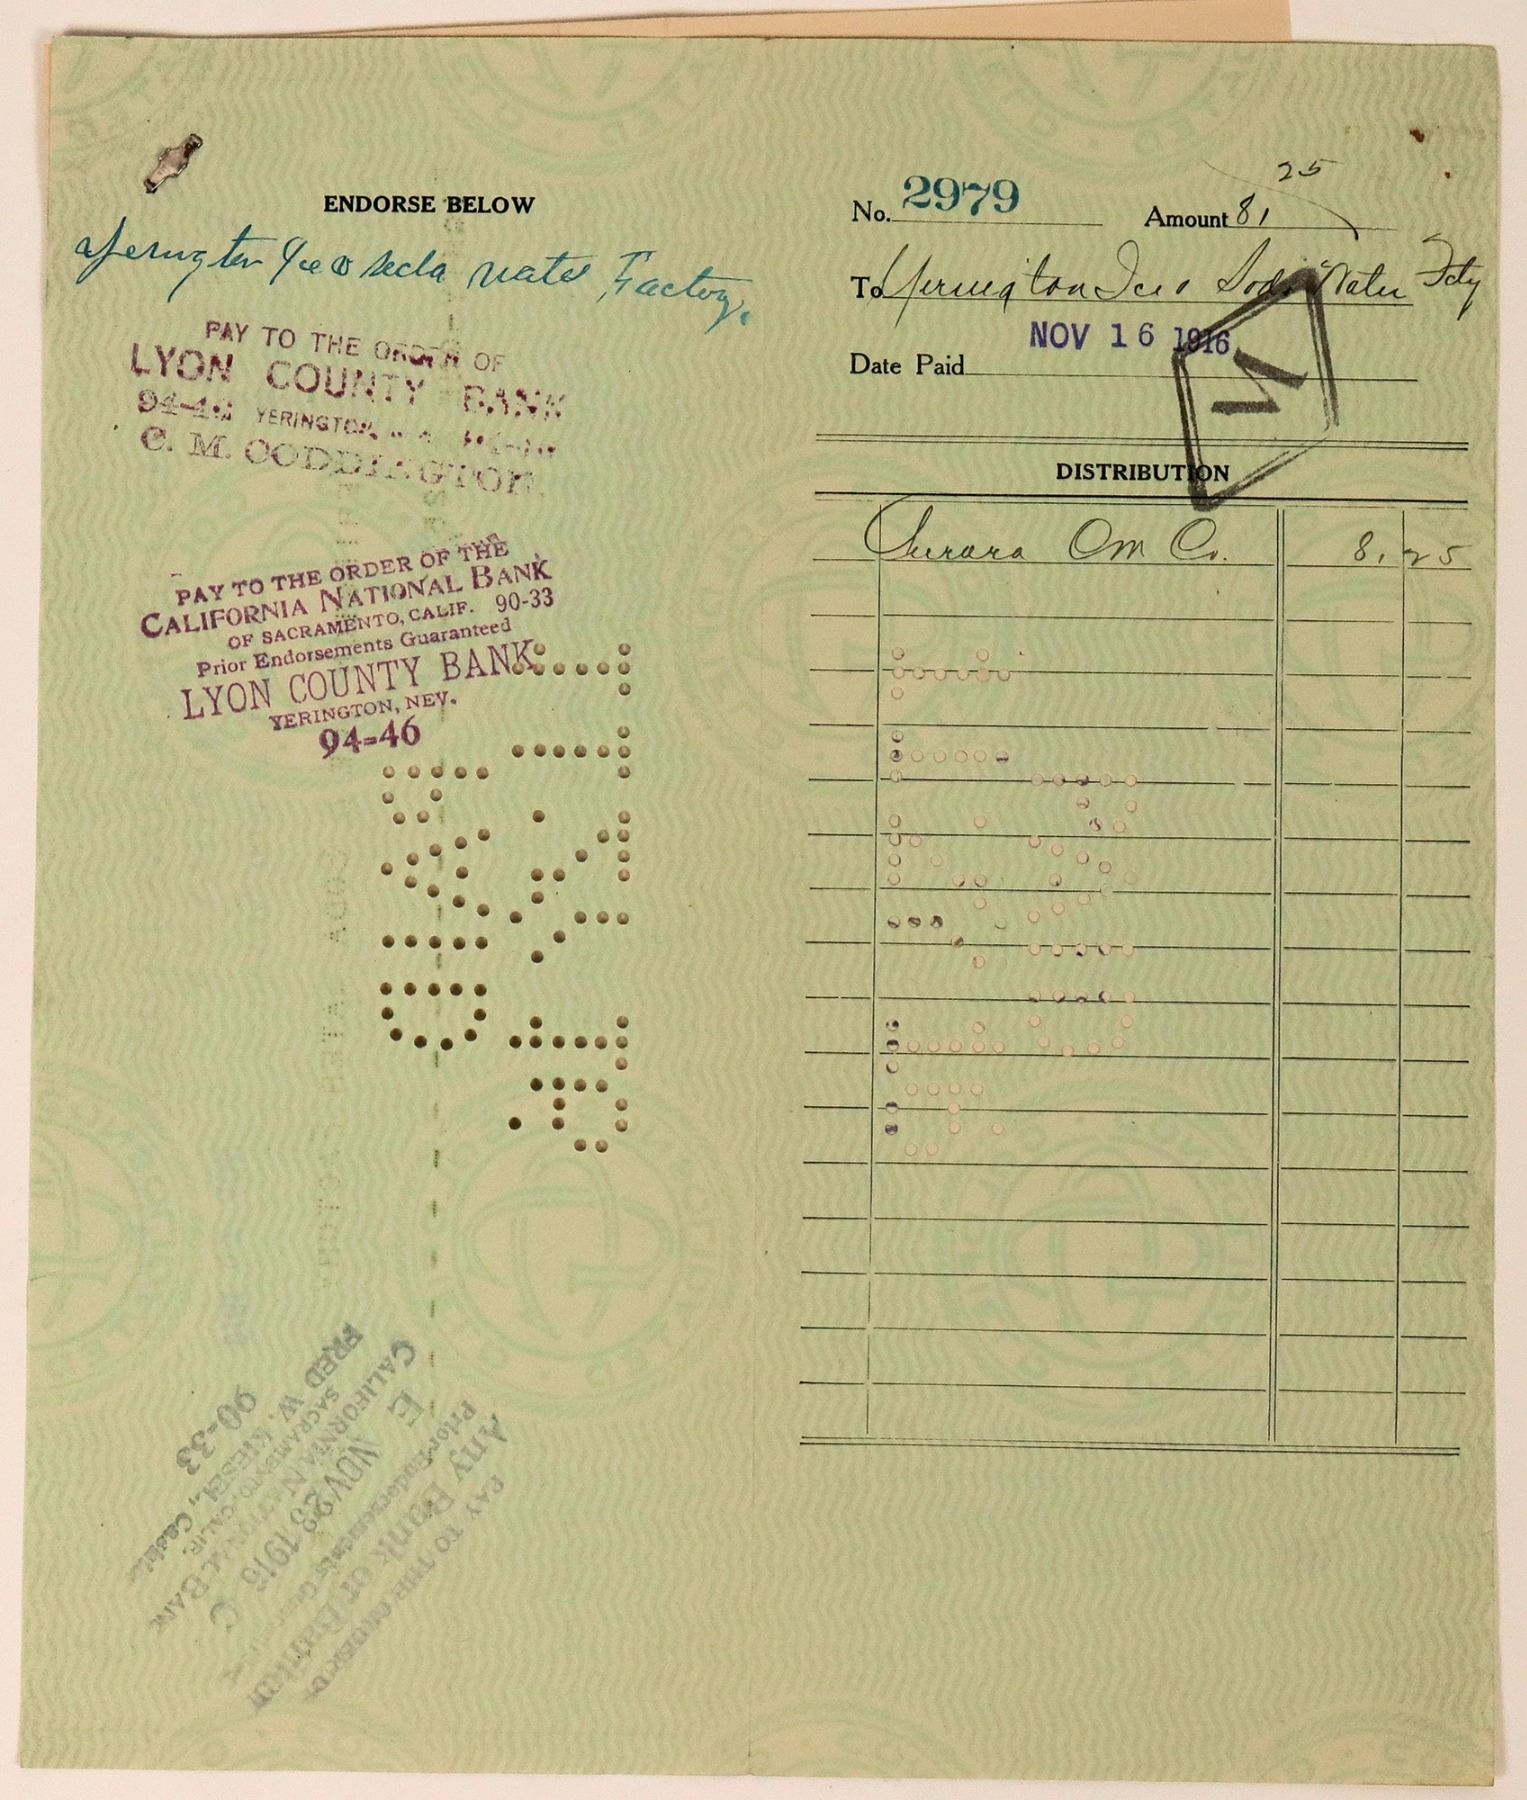 ENDORSE BELOW
Yerington Ice & Soda Water Factory.
PAY TO THE ORDER OF
LYON COUNTY BANK
94-46 YERINGTON,
C. M. CODDINGTON.
PAY TO THE ORDER OF THE
CALIFORNIA NATIONAL BANK
OF SACRAMENTO, CALIF. 90-33
Prior Endorsements Guaranteed
LYON COUNTY BANK
YERINGTON, NEV.
94-46
PAID
PAY TO THE ORDER OF
Any Bank or Banker
Prior Endorsements Guaranteed
E NOV 23 1916 C
CALIFORNIA NATIONAL BANK
SACRAMENTO, CALIF.
FRED W. KIESEL, Cashier
90-33
No. 2979 Amount 81 25
To Yerington Ice & Soda Water Fcty
NOV 16 1916
Date Paid
N
DISTRIBUTION
Aurora Cm Co. 81 25